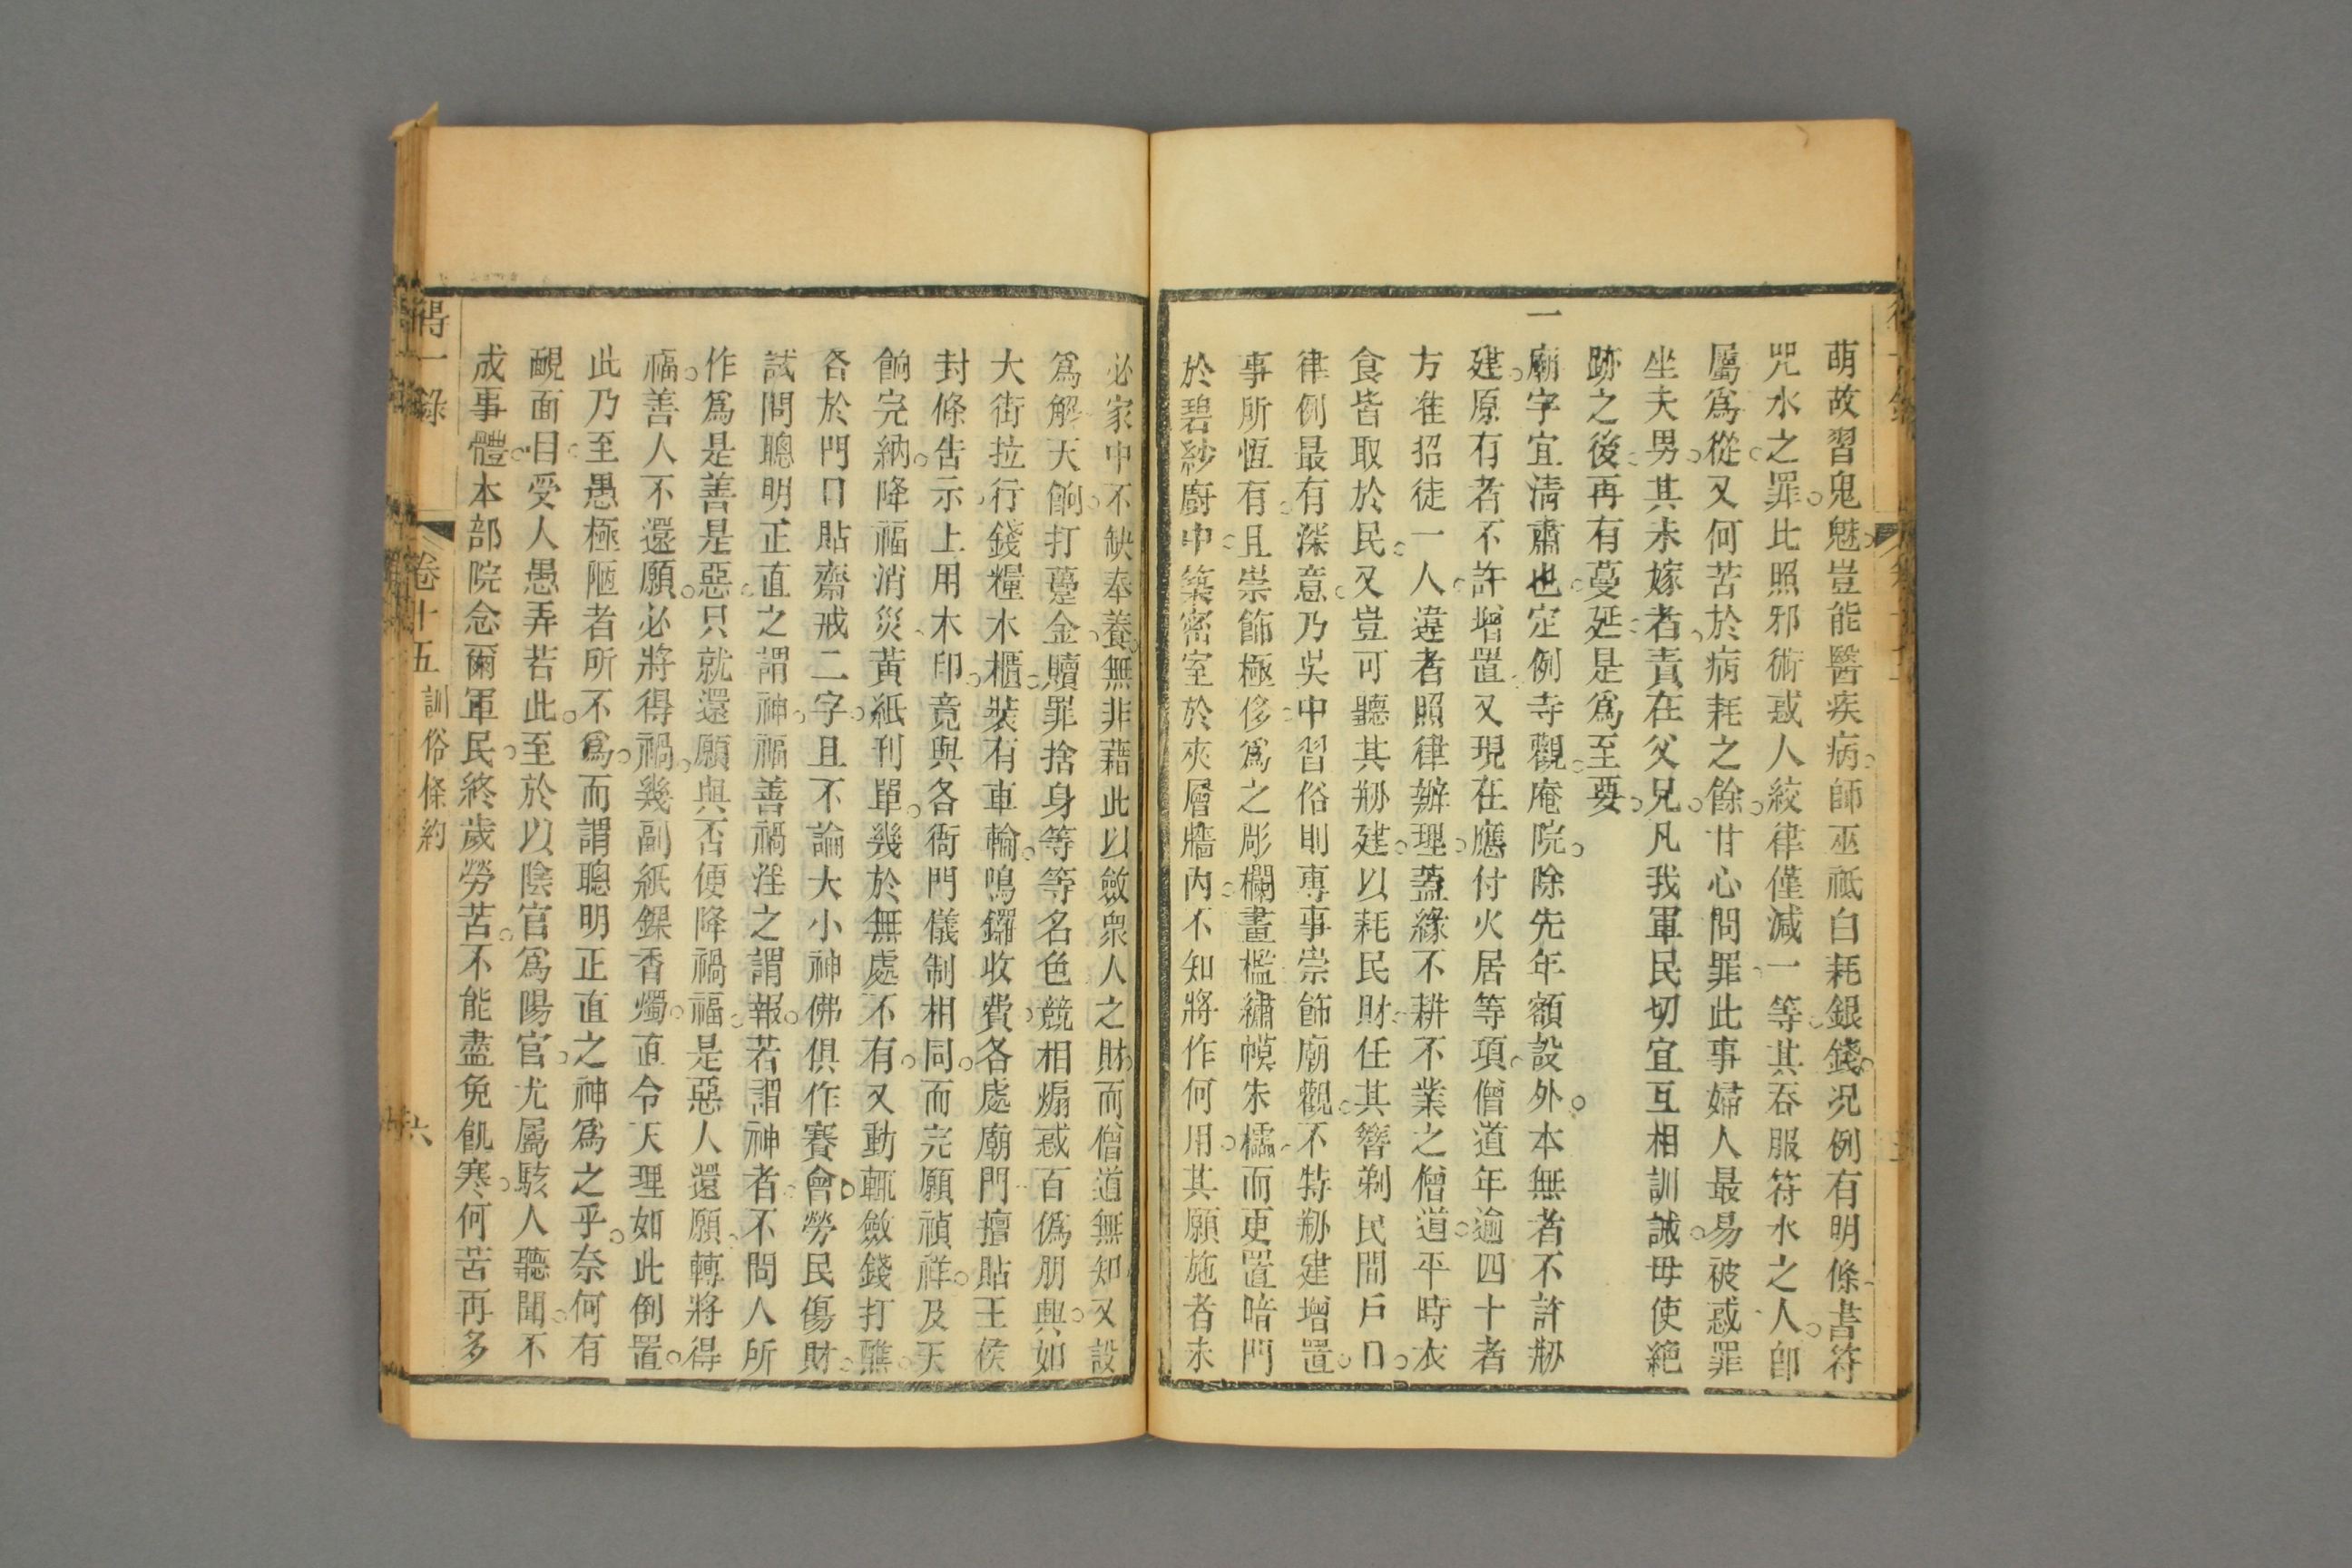 萌故習鬼魅豈能醫疾病。師巫祗白耗銀錢。况例有明條。書符
咒水之罪。比照邪術惑人絞律僅減一等。其吞服符水之人。卽
屬爲從。又何苦於病耗之餘。甘心問罪。此事婦人最易被惑。罪
坐夫男。其未嫁者。責在父兄。凡我軍民切宜互相訓誡。毋使絶
跡之後。再有蔓延。是爲至要。
一廟宇宜淸肅也。定例寺觀。庵院。除先年額設外。本無者不許剏
建。原有者不許增置。又現在應付火居等項。僧道年逾四十者
方准招徒一人。違者照律辦理。葢緣不耕不業之僧道。平時衣
食皆取於民。又豈可聽其剏建。以耗民財。任其簪剃民間戶口。
律例最有深意。乃吳中習俗則專事崇飾廟觀。不特剏建增置。
事所恆有。且崇飾極侈。爲之彫欄畫檻。繡幙朱櫺。而更置暗門
於碧紗廚中。築密室於夾層牆內。不知將作何用。其願施者未
必家中不缺奉養。無非藉此以斂衆人之財。而僧道無知。又設
爲解天餉。打躉金。贖罪捨身等等名色。競相煽惑。百僞朋興。如
大街拉行錢糧木櫃。裝有車輪。鳴鑼收費。各處廟門擅貼王侯
封條。告示上用木印。竟與各衙門儀制相同。而完願禎祥。及天
餉完納。降福消災。黃紙刊單。幾於無處不有。又動輒斂錢打醮。
各於門口貼齋戒二字。且不論大小神佛。俱作賽會。勞民傷財。
試問聰明正直之謂神。福善禍淫之謂報。若謂神者。不問人所
作爲。是善是惡。只就還願與否。便降禍福。是惡人還願。轉將得
福。善人不還願。必將得禍。幾副紙錁香燭。直令天理如此倒置。
此乃至愚極陋者所不爲。而謂聰明正直之神爲之乎。奈何有
靦面目。受人愚弄若此。至於以陰官爲陽官。尤屬駭人聽聞。不
成事體。本部院念爾軍民。終歲勞苦。不能盡免飢寒。何苦再多
得一錄
卷十五
訓俗條約
六